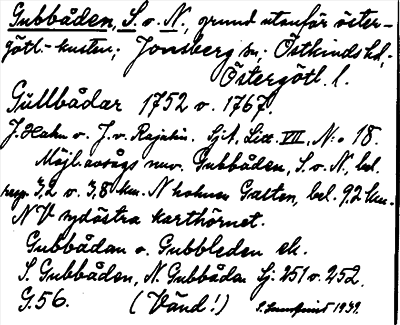 Gubbåden, S. o. N., grund utanför öster-
götl.-kusten; Jonsberg sn, Östkinds hd,
Östergötl. l.
Gullbådar 1752 o. 1767.
J. Hahn o. J. v. Rajalin. Sjk. Litt. VII, N:o 18.
Möjl. avsågs nuv. Gubbåden, S. o. N., bel.
resp. 3,2 o. 3,8 km. N holmen Gatten, bel. 9,2 km.
NV sydöstra karthörnet.
Gubbådan o. Gubbleden ek.
S. Gubbåden, N. Gubbåda Sj: 251 o. 252.
G. 56. (Vänd!) 1939.